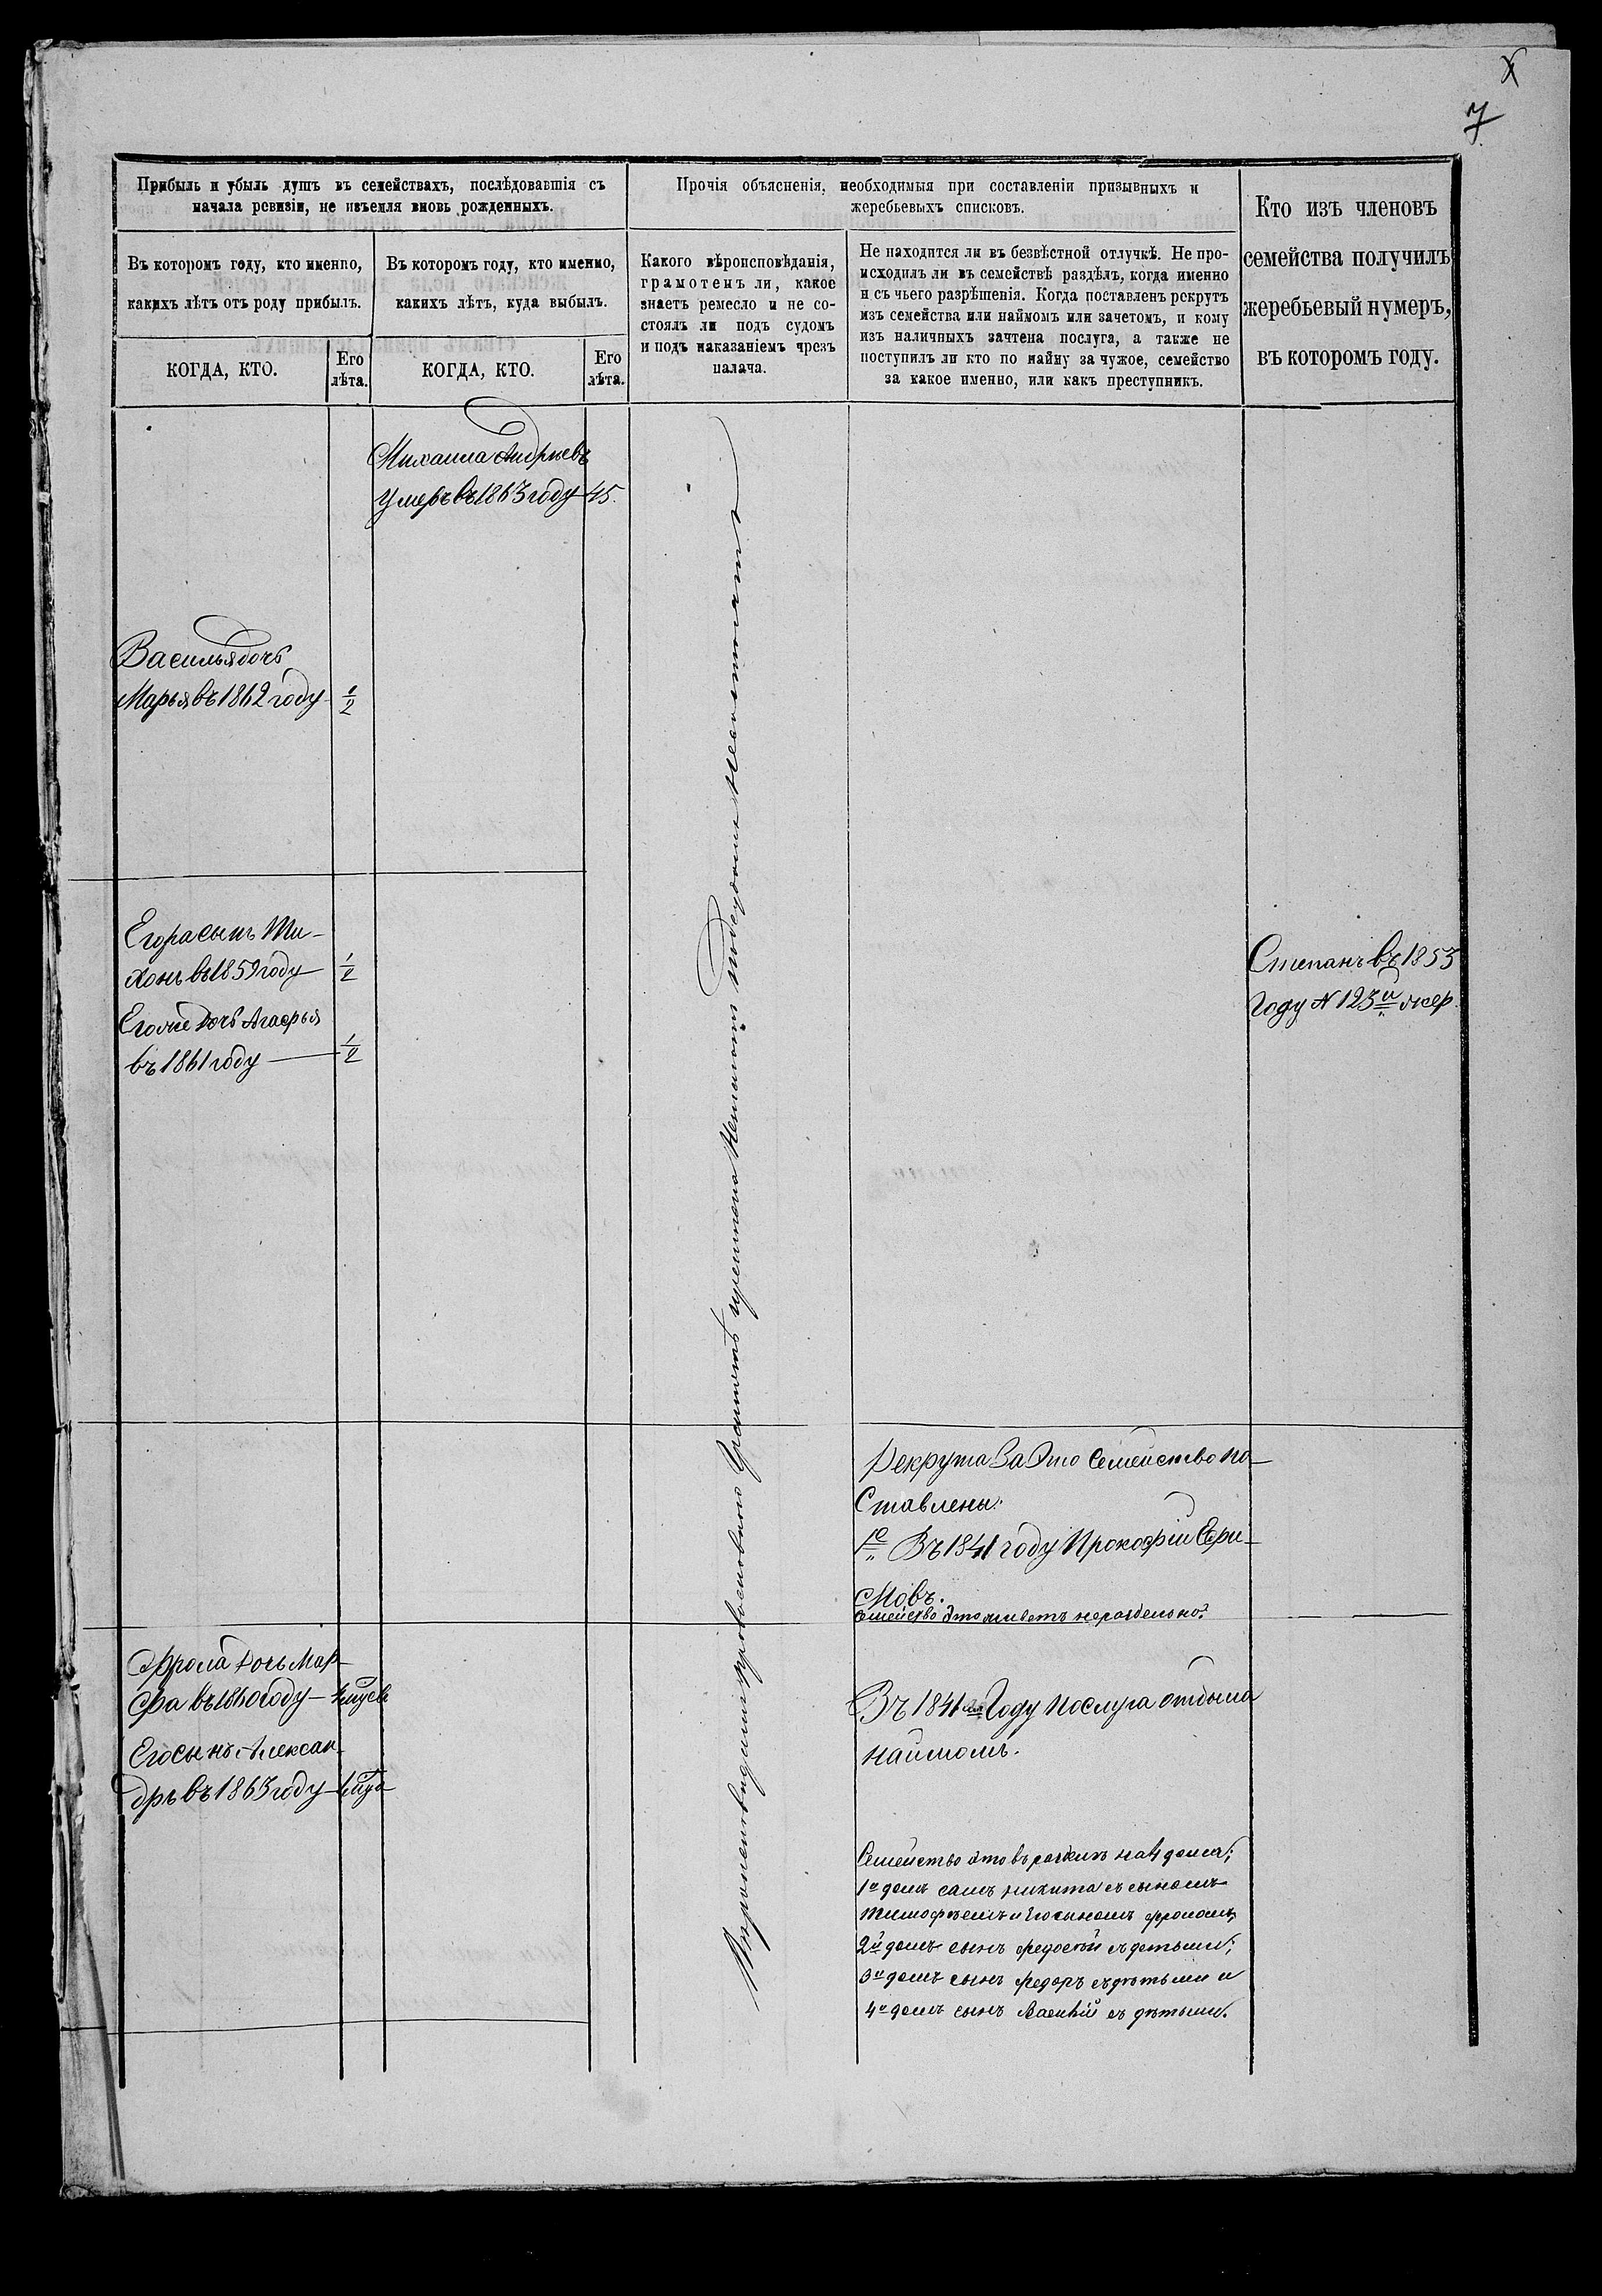 7
Прибыль и убыль душъ въ семействахъ, послѣдовавшія съ
начала ревизіи, не изъемля вновь рожденныхъ.
Прочія объясненія, необходимыя при составленіи призывныхъ и
жеребьевыхъ списковъ.
Кто изъ членовъ
семейства получилъ
жеребьевый нумеръ,
въ которомъ году.
Въ которомъ году, кто именно,
какихъ лѣтъ отъ роду прибылъ.
Въ которомъ году, кто именно,
какихъ лѣтъ, куда выбылъ.
Какого вѣроисповѣданія,
грамотенъ ли, какое
знаетъ ремесло и не со-
стоялъ ли подъ судомъ
и подъ наказаніемъ чрезъ
палача.
Не находится ли въ безвѣстной отлучкѣ. Не про-
исходилъ ли въ семействѣ раздѣлъ, когда именно
и съ чьего разрѣшенія. Когда поставленъ рекрутъ
изъ семейства или наймомъ или зачетомъ, и кому
изъ наличныхъ зачтена послуга, а также не
поступилъ ли кто по найму за чужое, семейство
за какое именно, или какъ преступникъ.
КОГДА, КТО.
Его
лѣта.
КОГДА, КТО.
Его
лѣта.
Михаила Андриевъ
умеръ въ 1863 году 45.
Василья дочь
Марья въ 1862 году 1/2
Егора сынъ Ти-
хонъ въ 1859 году 1/2
Егоже дочь Агафья
въ 1861 году 1/2
Степанъ въ 1853
году N 123й жер.
Вѣроисповѣданія православнаго Грамотѣ
Рекрута За Это Семейство по-
ставлены.
1е Въ 1841 году Прокофій Ефи-
мовъ.
Семейство Это живетъ нераздельно.
Фрола дочь Мар-
фа въ 1860 году
Его сынъ Алексан-
дръ въ 1863 году
Въ 1841мъ году послуга отбыта
наймомъ.
Семейство это въ разделѣ на 4 дома;
1й домъ самъ Никита съ сыномъ
Тимофѣемъ и Его сыномъ Фроломъ,
2й домъ сынъ Федосѣй съ детьми;
3й домъ сынъ Федоръ съ дѣтьми и
4й домъ сынъ Василій съ дѣтьми.